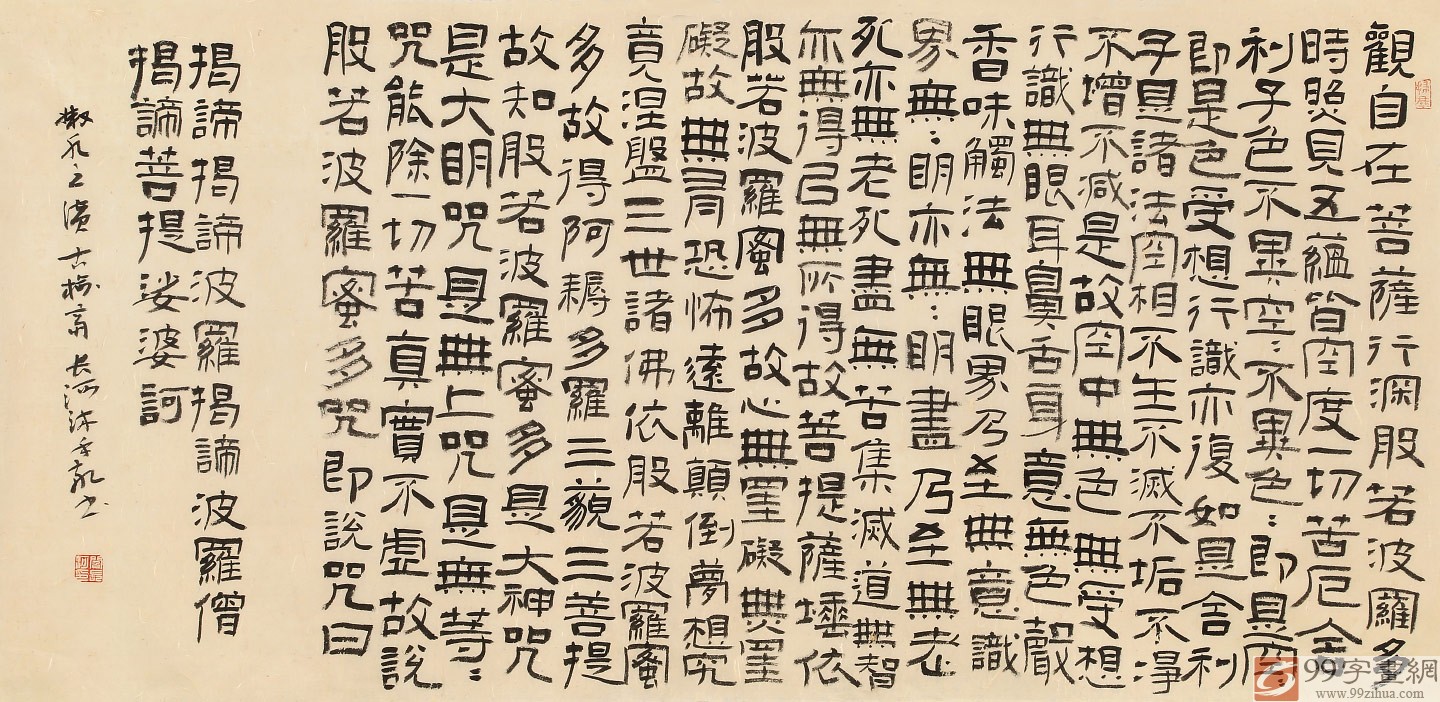 觀自在菩薩行深般若波羅多
時照見五蘊皆空度一切苦厄舍
利子色不異空:不異色:即是空:
即是色受想行識亦復如是舍利
子是諸法空相不生不滅不垢不淨
不增不減是故空中無色無受想
行識無眼耳鼻舌身意無色聲
香味觸法無眼界乃至無意識
界無:明亦無:明盡乃至無老
死亦無老死盡無苦集滅道無智
亦無得以無所得故菩提薩埵依
般若波羅蜜多故心無罣礙無罣
礙故無有恐怖遠離顛倒夢想究
竟涅盤三世諸佛依般若波羅蜜
多故得阿耨多羅三藐三菩提
故知般若波羅蜜多是大神咒
是大明咒是無上咒是無等:
咒能除一切苦真實不虛故說
般若波羅蜜多咒即說咒曰
揭諦揭諦波羅揭諦波羅僧
揭諦菩提娑婆訶
之濱古榆斋长河沐手敬书
99字畫網
www.99zihua.com